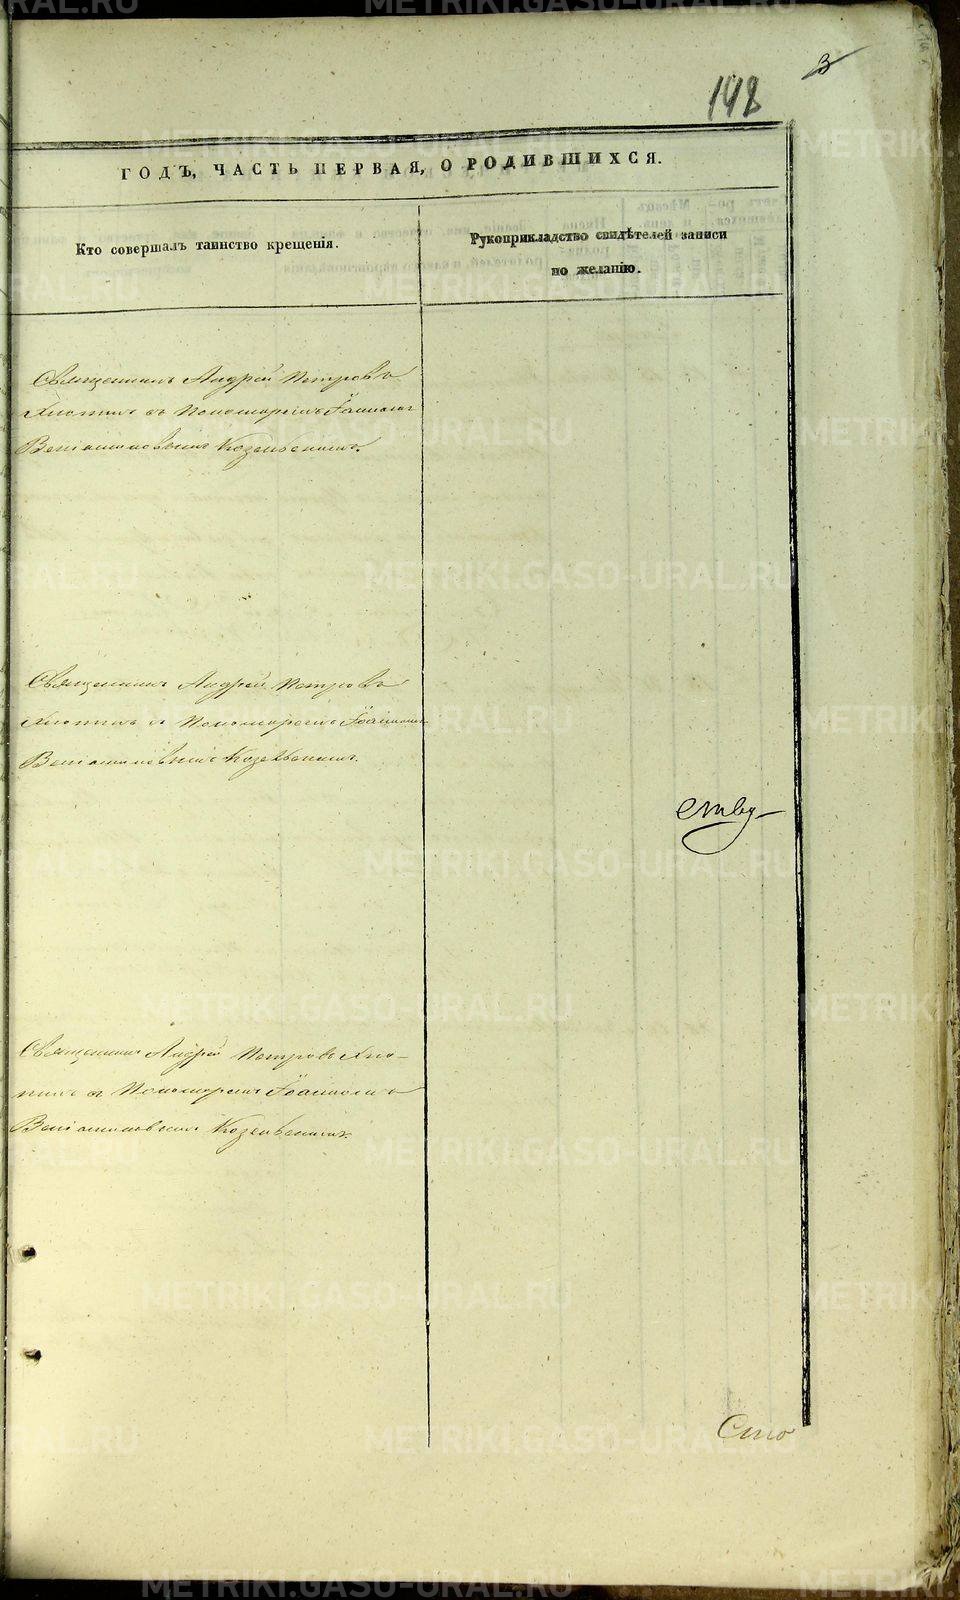 3
148
ГОДЪ, ЧАСТЬ ПЕРВАЯ, О РОДИВШИХСЯ.
Кто совершалъ таинство крещенія.
Рукоприкладство свидѣтелей записи
по желанію.
Священникъ Андрей Петровъ
Хлопинъ съ Пономаремъ Іоанномъ
Веніаминовымъ Козельскимъ.
Священникъ Андрей Петровъ
Хлопинъ съ Пономаремъ Іоанномъ
Веніаминовымъ Козельскимъ.
ству-
Священникъ Андрей Петровъ Хло-
пинъ съ Пономаремъ Іоанномъ
Веніаминовымъ Козельскимъ.
Сто
METRIKI.GASO-URAL.RU